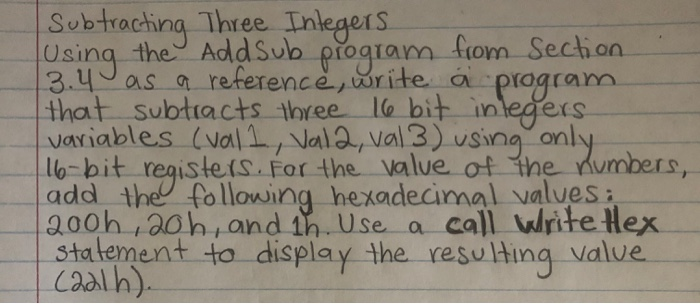 Subtracting Three Integers
Using the AddSub program from Section
3.4 as a reference, write a program
that subtracts three 16 bit integers
variables (val1, Val2, val3) using only
16-bit registers. For the value of the numbers,
add the following hexadecimal values:
200h, 20h, and 1h. Use a call WriteHex
statement to display the resulting value
(221h).